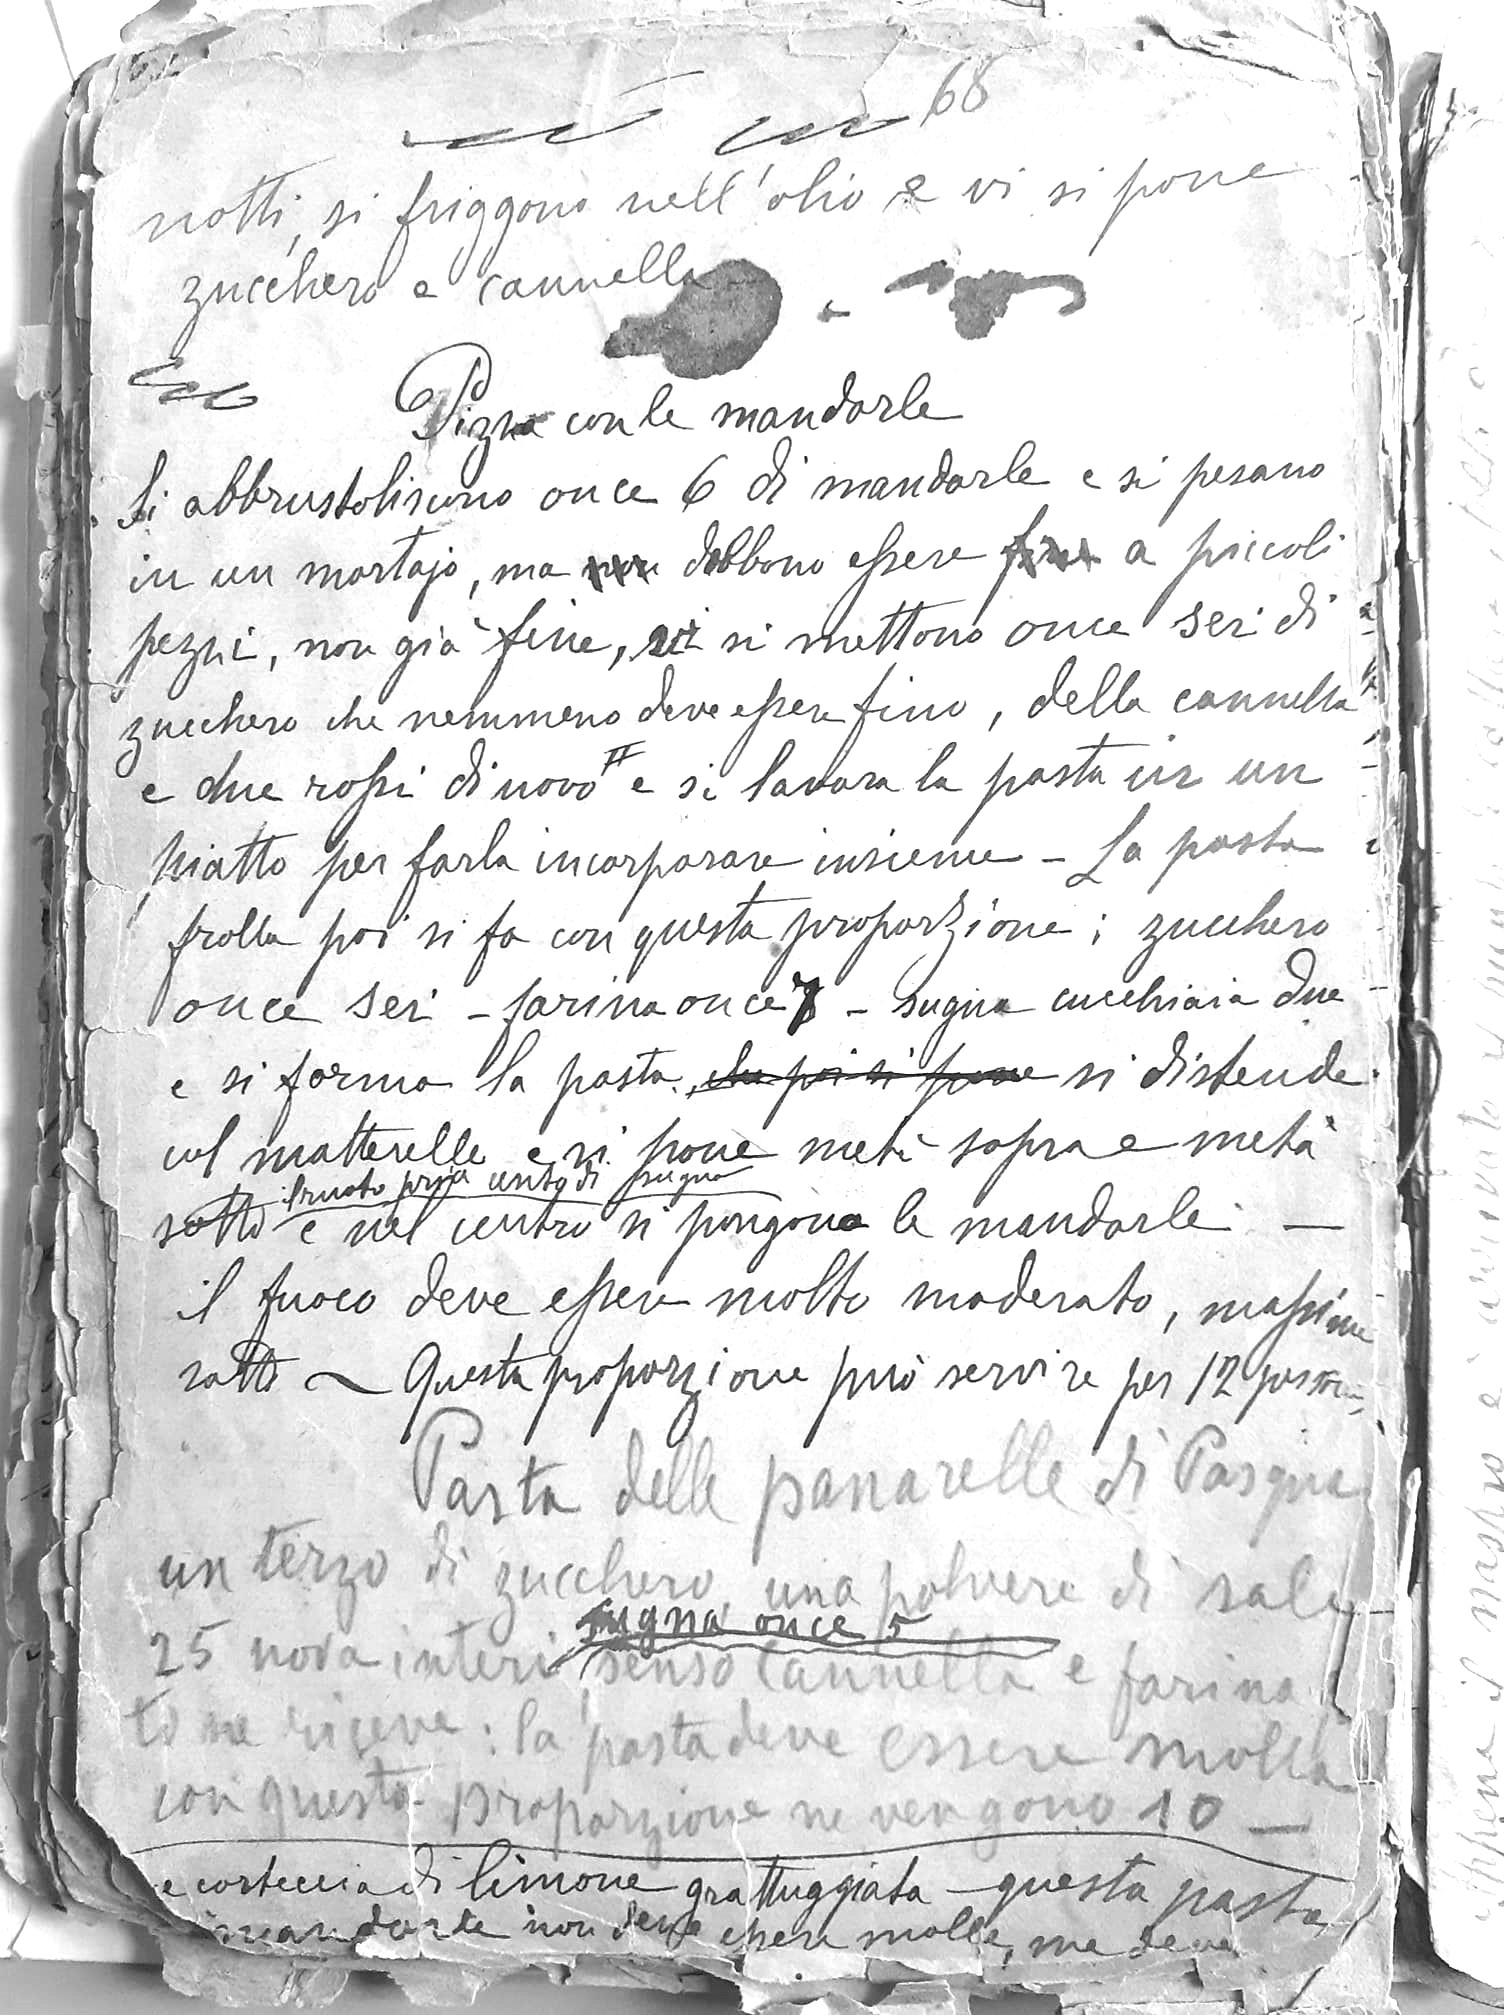 68
notti, si friggono nell'olio e vi si pone
zucchero e cannella -
Pizza con le mandorle
Si abbrustoliscono once 6 di mandorle e si pesano
in un mortajo, ma non debbono essere fine a piccoli
pezzi, non già fine, si mettono once sei di
zucchero che nemmeno deve essere fino, della cannella
e due rossi di uovo # e si lavora la pasta in un
piatto per farla incorporare insieme - La pasta
frolla poi si fa con questa proporzione; zucchero
once sei - farina once 7 - sugna cucchiaia due
e si forma la pasta. che poi si pone si distende
col matterello e si pone metà sopra e metà
il ruoto pria unto di sugna
sotto e nel centro si pongono le mandorle -
il fuoco deve essere molto moderato, massime
sotto ~ Questa proporzione può servire per 12 persone
Pasta delle panarelle di Pasqua
un terzo di zucchero, una polvere di sale
sugna once 5
25 uova interi, senso cannella e farina
ta ne riceve: la pasta deve essere molla
con questa proporzione ne vengono 10 -
e corteccia di limone grattuggiata - questa pasta
mandorle non deve essere molle, ma deve